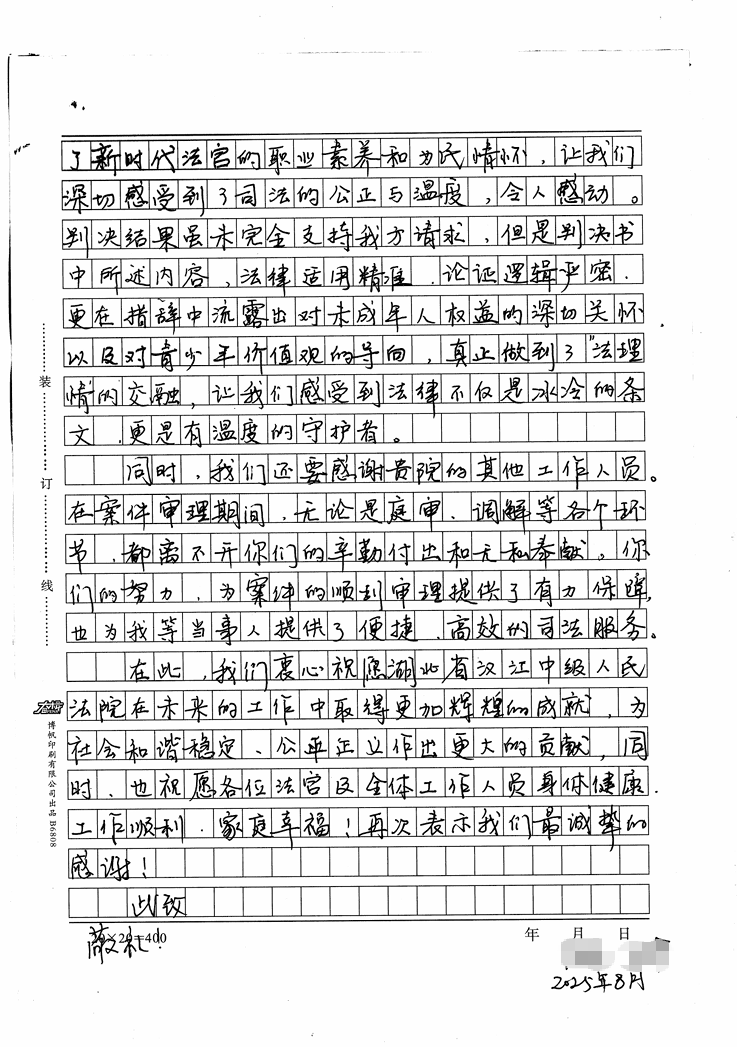 了新时代法官的职业素养和为民情怀，让我们
深切感受到了司法的公正与温度，令人感动。
判决结果虽未完全支持我方请求，但是判决书
中所述内容，法律适用精准，论证逻辑严密，
更在措辞中流露出对未成年人权益的深切关怀
以及对青少年价值观的导向，真正做到了“法理
情”的交融，让我们感受到法律不仅是冰冷的条
文，更是有温度的守护者。
同时，我们还要感谢贵院的其他工作人员。
在案件审理期间，无论是庭审、调解等各个环
节，都离不开你们的辛勤付出和无私奉献。你
们的努力，为案件的顺利审理提供了有力保障，
也为我等当事人提供了便捷、高效的司法服务。
在此，我们衷心祝愿湖北省汉江中级人民
法院在未来的工作中取得更加辉煌的成就，为
社会和谐稳定、公平正义作出更大的贡献，同
时，也祝愿各位法官及全体工作人员身体健康，
工作顺利，家庭幸福！再次表示我们最诚挚的
感谢！
此致
敬礼！
20=400
年 月 日
2025年8月
装
订
线
博帆印刷有限公司出品 B6808